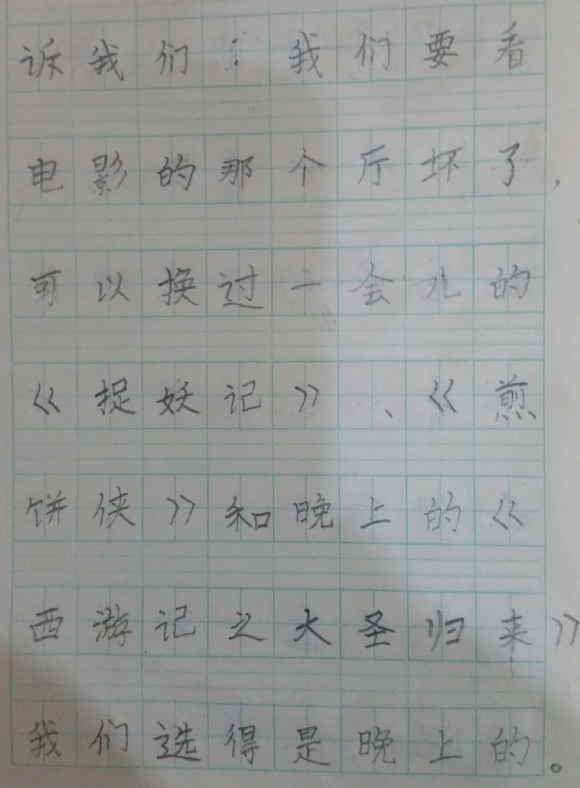 诉我们：我们要看
电影的那个厅坏了，
可以换过一会儿的
《捉妖记》、《煎
饼侠》和晚上的《
西游记之大圣归来》
我们选得是晚上的。